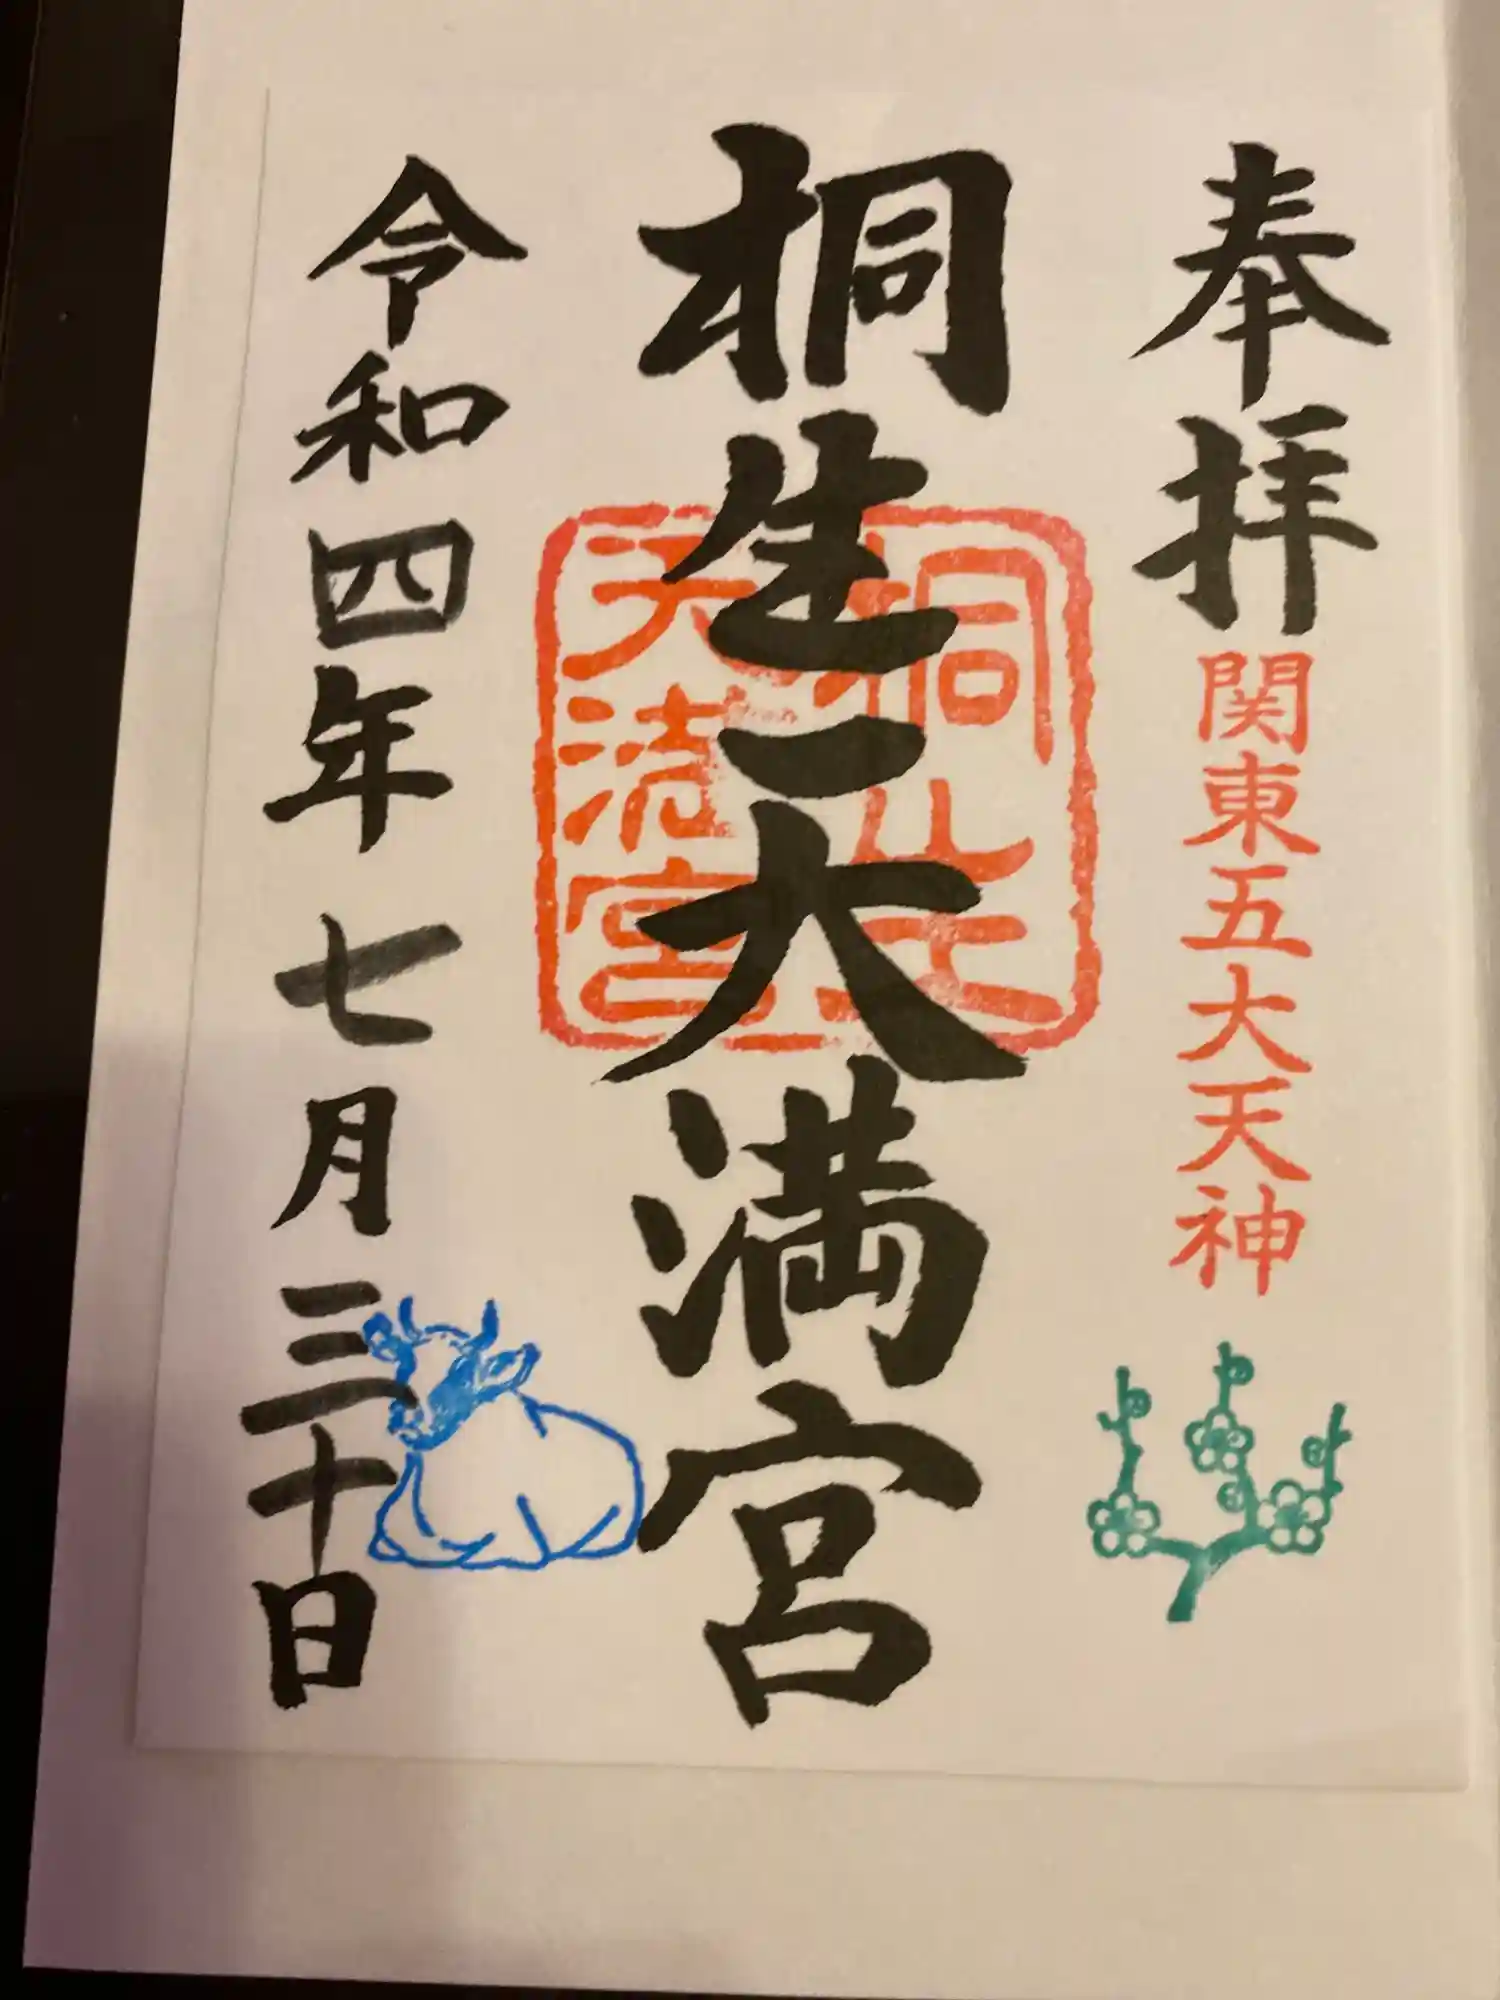 奉拝
関東五大天神
桐生天満宮
桐生
天満宮
令和四年七月三十日